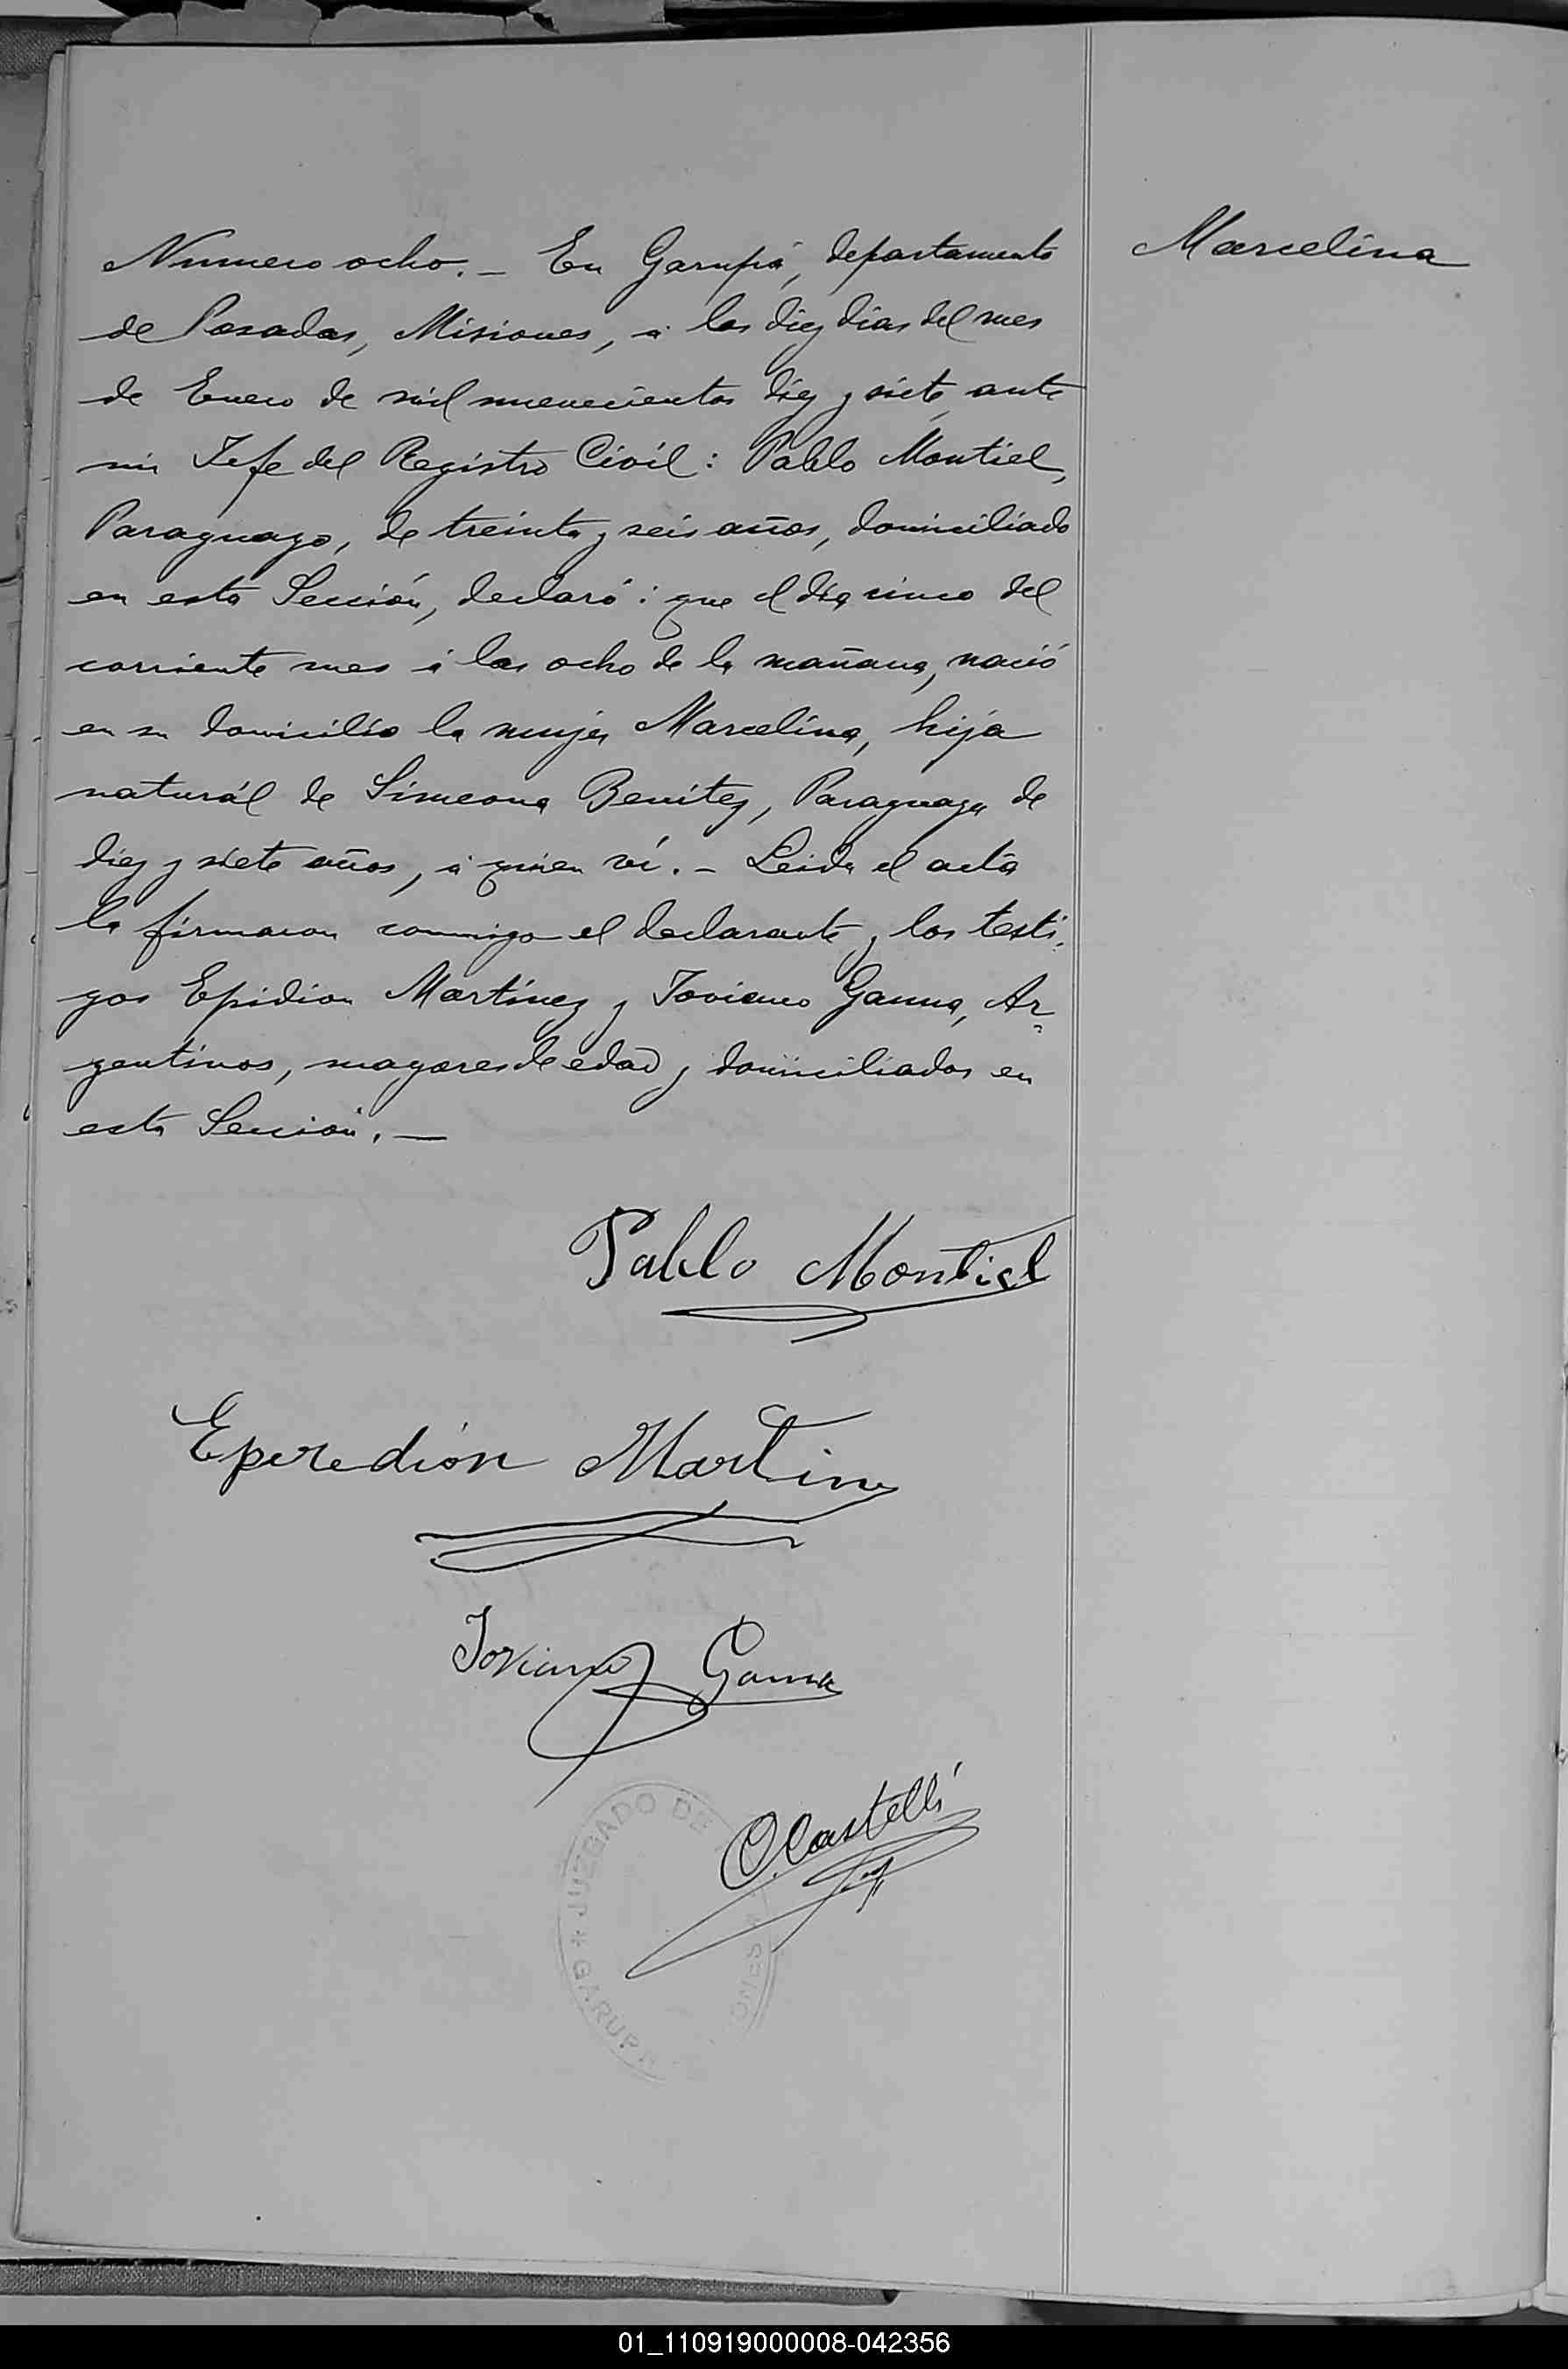 Numero ocho. – En Garupá, departamento
de Posadas, Misiones, á los diez dias del mes
de Enero de mil novecientos diez y siete, ante
mi Jefe del Registro Civil: Pablo Montiel,
Paraguayo, de treinta y seis años, domiciliado
en esta Sección, declaró: que el dia cinco del
corriente mes á las ocho de la mañana, nació
en su domicilio la mujer Marcelina, hija
naturál de Simeona Benitez, Paraguaya de
diez y siete años, á quien ví. – Leida el acta
la firmaron conmigo el declarante y los testi-
gos Epidion Martínez y Joviano Gamma, Ar-
gentinos, mayores de edad y domiciliados en
esta Sección. —
Marcelina
Pablo Montiel
Eperedión Martinz
Joviano Gamma
O. Castelli
JUZGADO DE
* GARUPA
ONES *
01_110919000008-042356